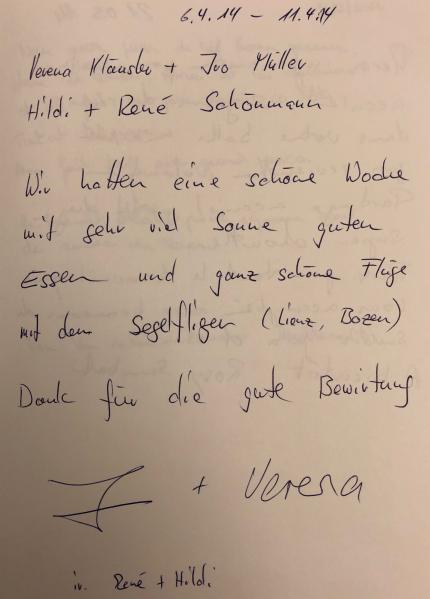 6.4.14 – 11.4.14
Verena Kläusler + Ivo Müller
Hildi + René Schönmann
Wir hatten eine schöne Woche
mit sehr viel Sonne guten
Essen und ganz schöne Flüge
mit dem Segelfligen (Lienz, Bozen)
Dank für die gute Bewirtung
+ Verena
iv. René + Hildi